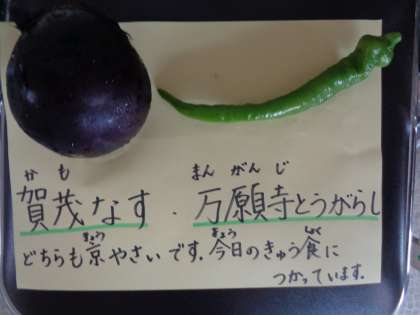 かも まんがんじ
賀茂なす・万願寺とうがらし
きょう きょう しょく
どちらも京やさいです。今日のきゅう食に
つかっています。